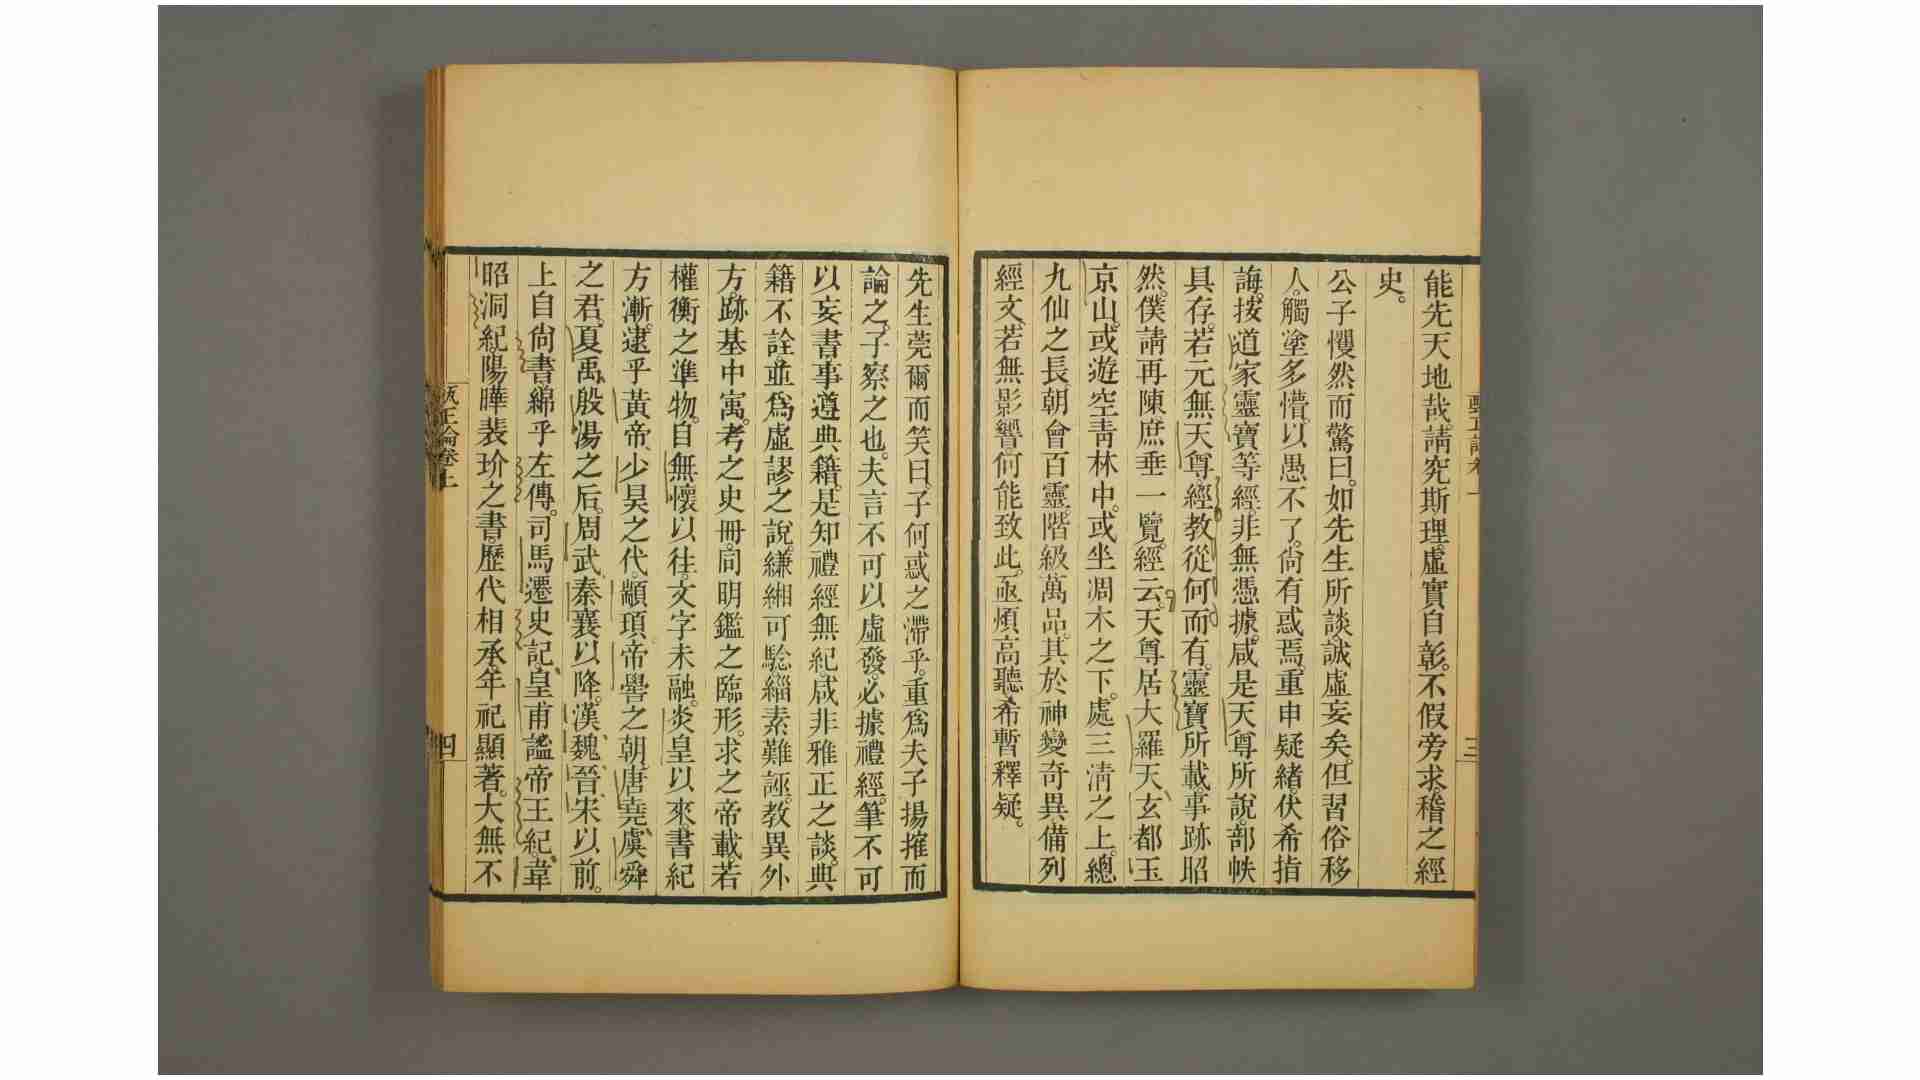 能先天地哉。請究斯理。虛實自彰。不假旁求。稽之經
史。
公子戄然而驚曰。如先生所談。誠虛妄矣。但習俗移
人。觸塗多懵。以愚不了。尙有惑焉。重申疑緒。伏希指
誨。按道家靈寶等經。非無憑據。咸是天尊所說。部帙
具存。若元無天尊。經教從何而有。靈寶所載。事跡昭
然。僕請再陳。庶垂一覽。經云。天尊居大羅天、玄都玉
京山。或遊空靑林中。或坐凋木之下。處三淸之上。總
九仙之長。朝會百靈。階級萬品。其於神變奇異。備列
經文。若無影響。何能致此。亟煩高聽。希暫釋疑。
三
先生莞爾而笑曰。子何惑之滯乎。重爲夫子揚搉而
論之。子察之也。夫言不可以虛發。必據禮經。筆不可
以妄書。事遵典籍。是知禮經無紀。咸非雅正之談。典
籍不詮。並爲虛謬之說。縑緗可騐。緇素難誣。教異外
方。跡基中寓。考之史冊。同明鑑之臨形。求之帝載。若
權衡之準物。自無懷以往。文字未融。炎皇以來。書紀
方漸。逮乎黃帝、少昊之代。顓頊、帝嚳之朝。唐堯、虞舜
之君。夏禹、殷湯之后。周武、秦襄以降。漢、魏、晉、宋以前。
上自尙書。綿乎左傳。司馬遷史記、皇甫謐帝王紀、韋
昭洞紀。陽曄裴玠之書。歷代相承。年祀顯著。大無不
正論卷上
四